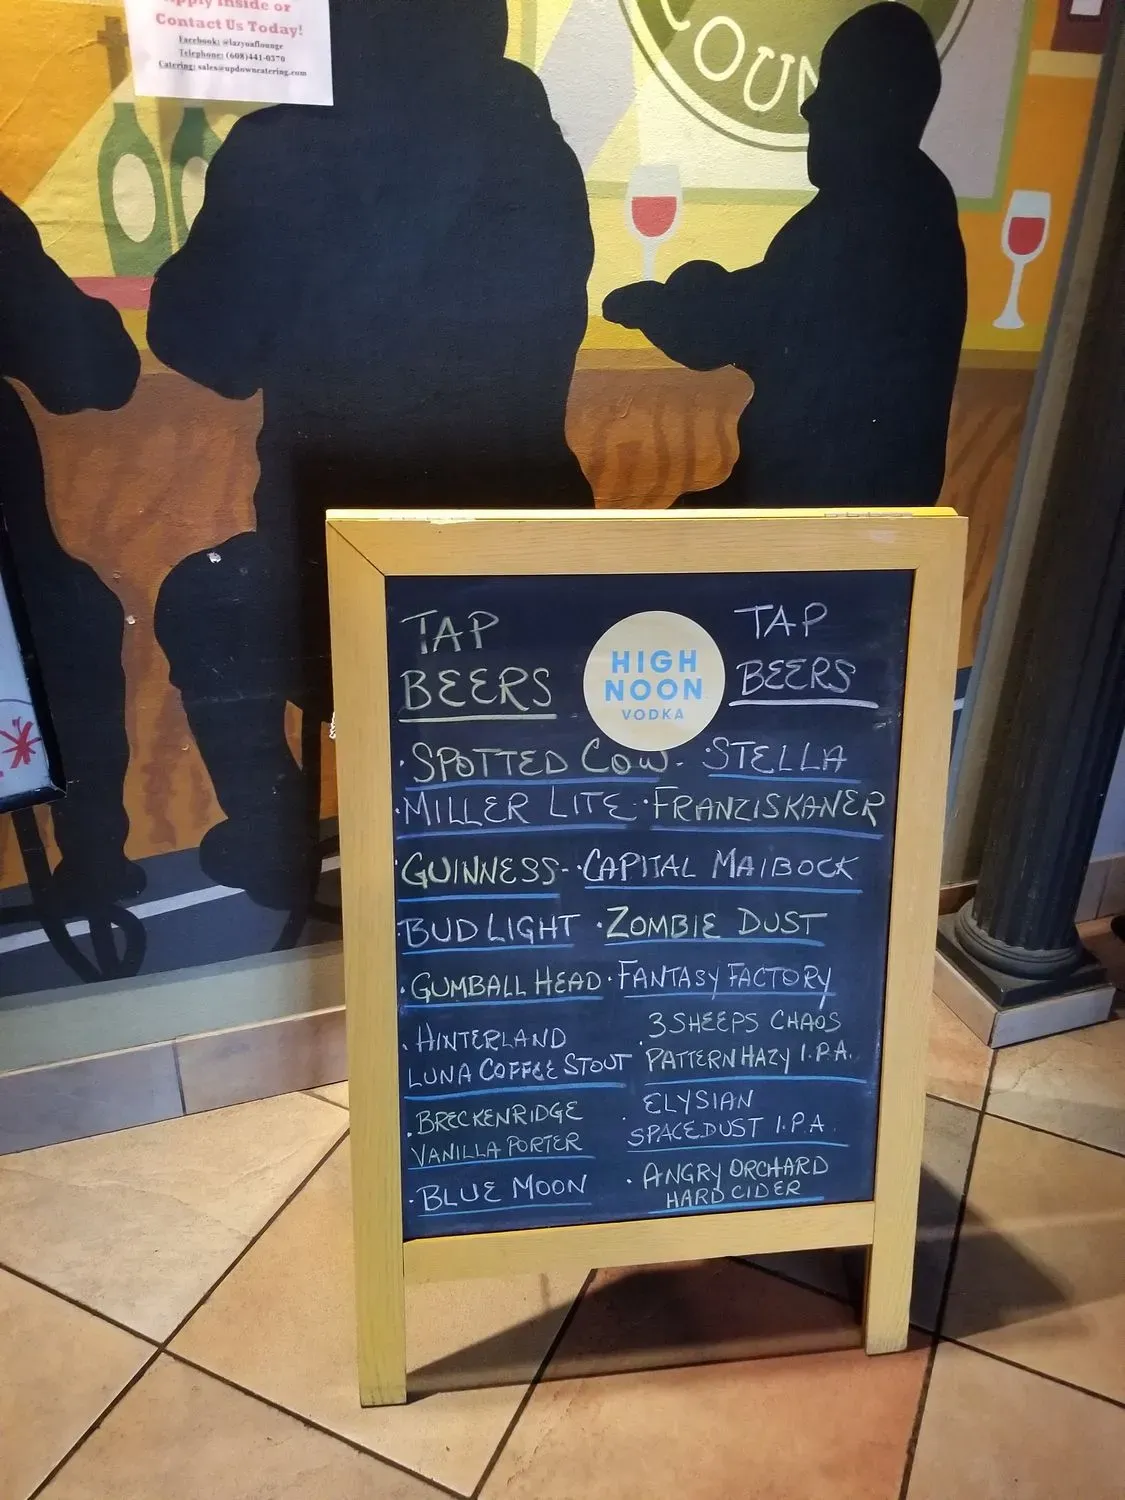 Apply Inside or
Contact Us Today!
Facebook: @lazyoaflounge
Telephone: (608)441-0370
Catering: sales@updowncatering.com
TAP
BEERS
HIGH
NOON
VODKA
TAP
BEERS
· SPOTTED COW
· MILLER LITE
· GUINNESS
· BUD LIGHT
· GUMBALL HEAD
· HINTERLAND
LUNA COFFEE STOUT
· BRECKENRIDGE
VANILLA PORTER
· BLUE MOON
· STELLA
· FRANZISKANER
· CAPITAL MAIBOCK
· ZOMBIE DUST
· FANTASY FACTORY
· 3 SHEEPS CHAOS
PATTERN HAZY I.P.A.
· ELYSIAN
SPACEDUST I.P.A.
· ANGRY ORCHARD
HARD CIDER